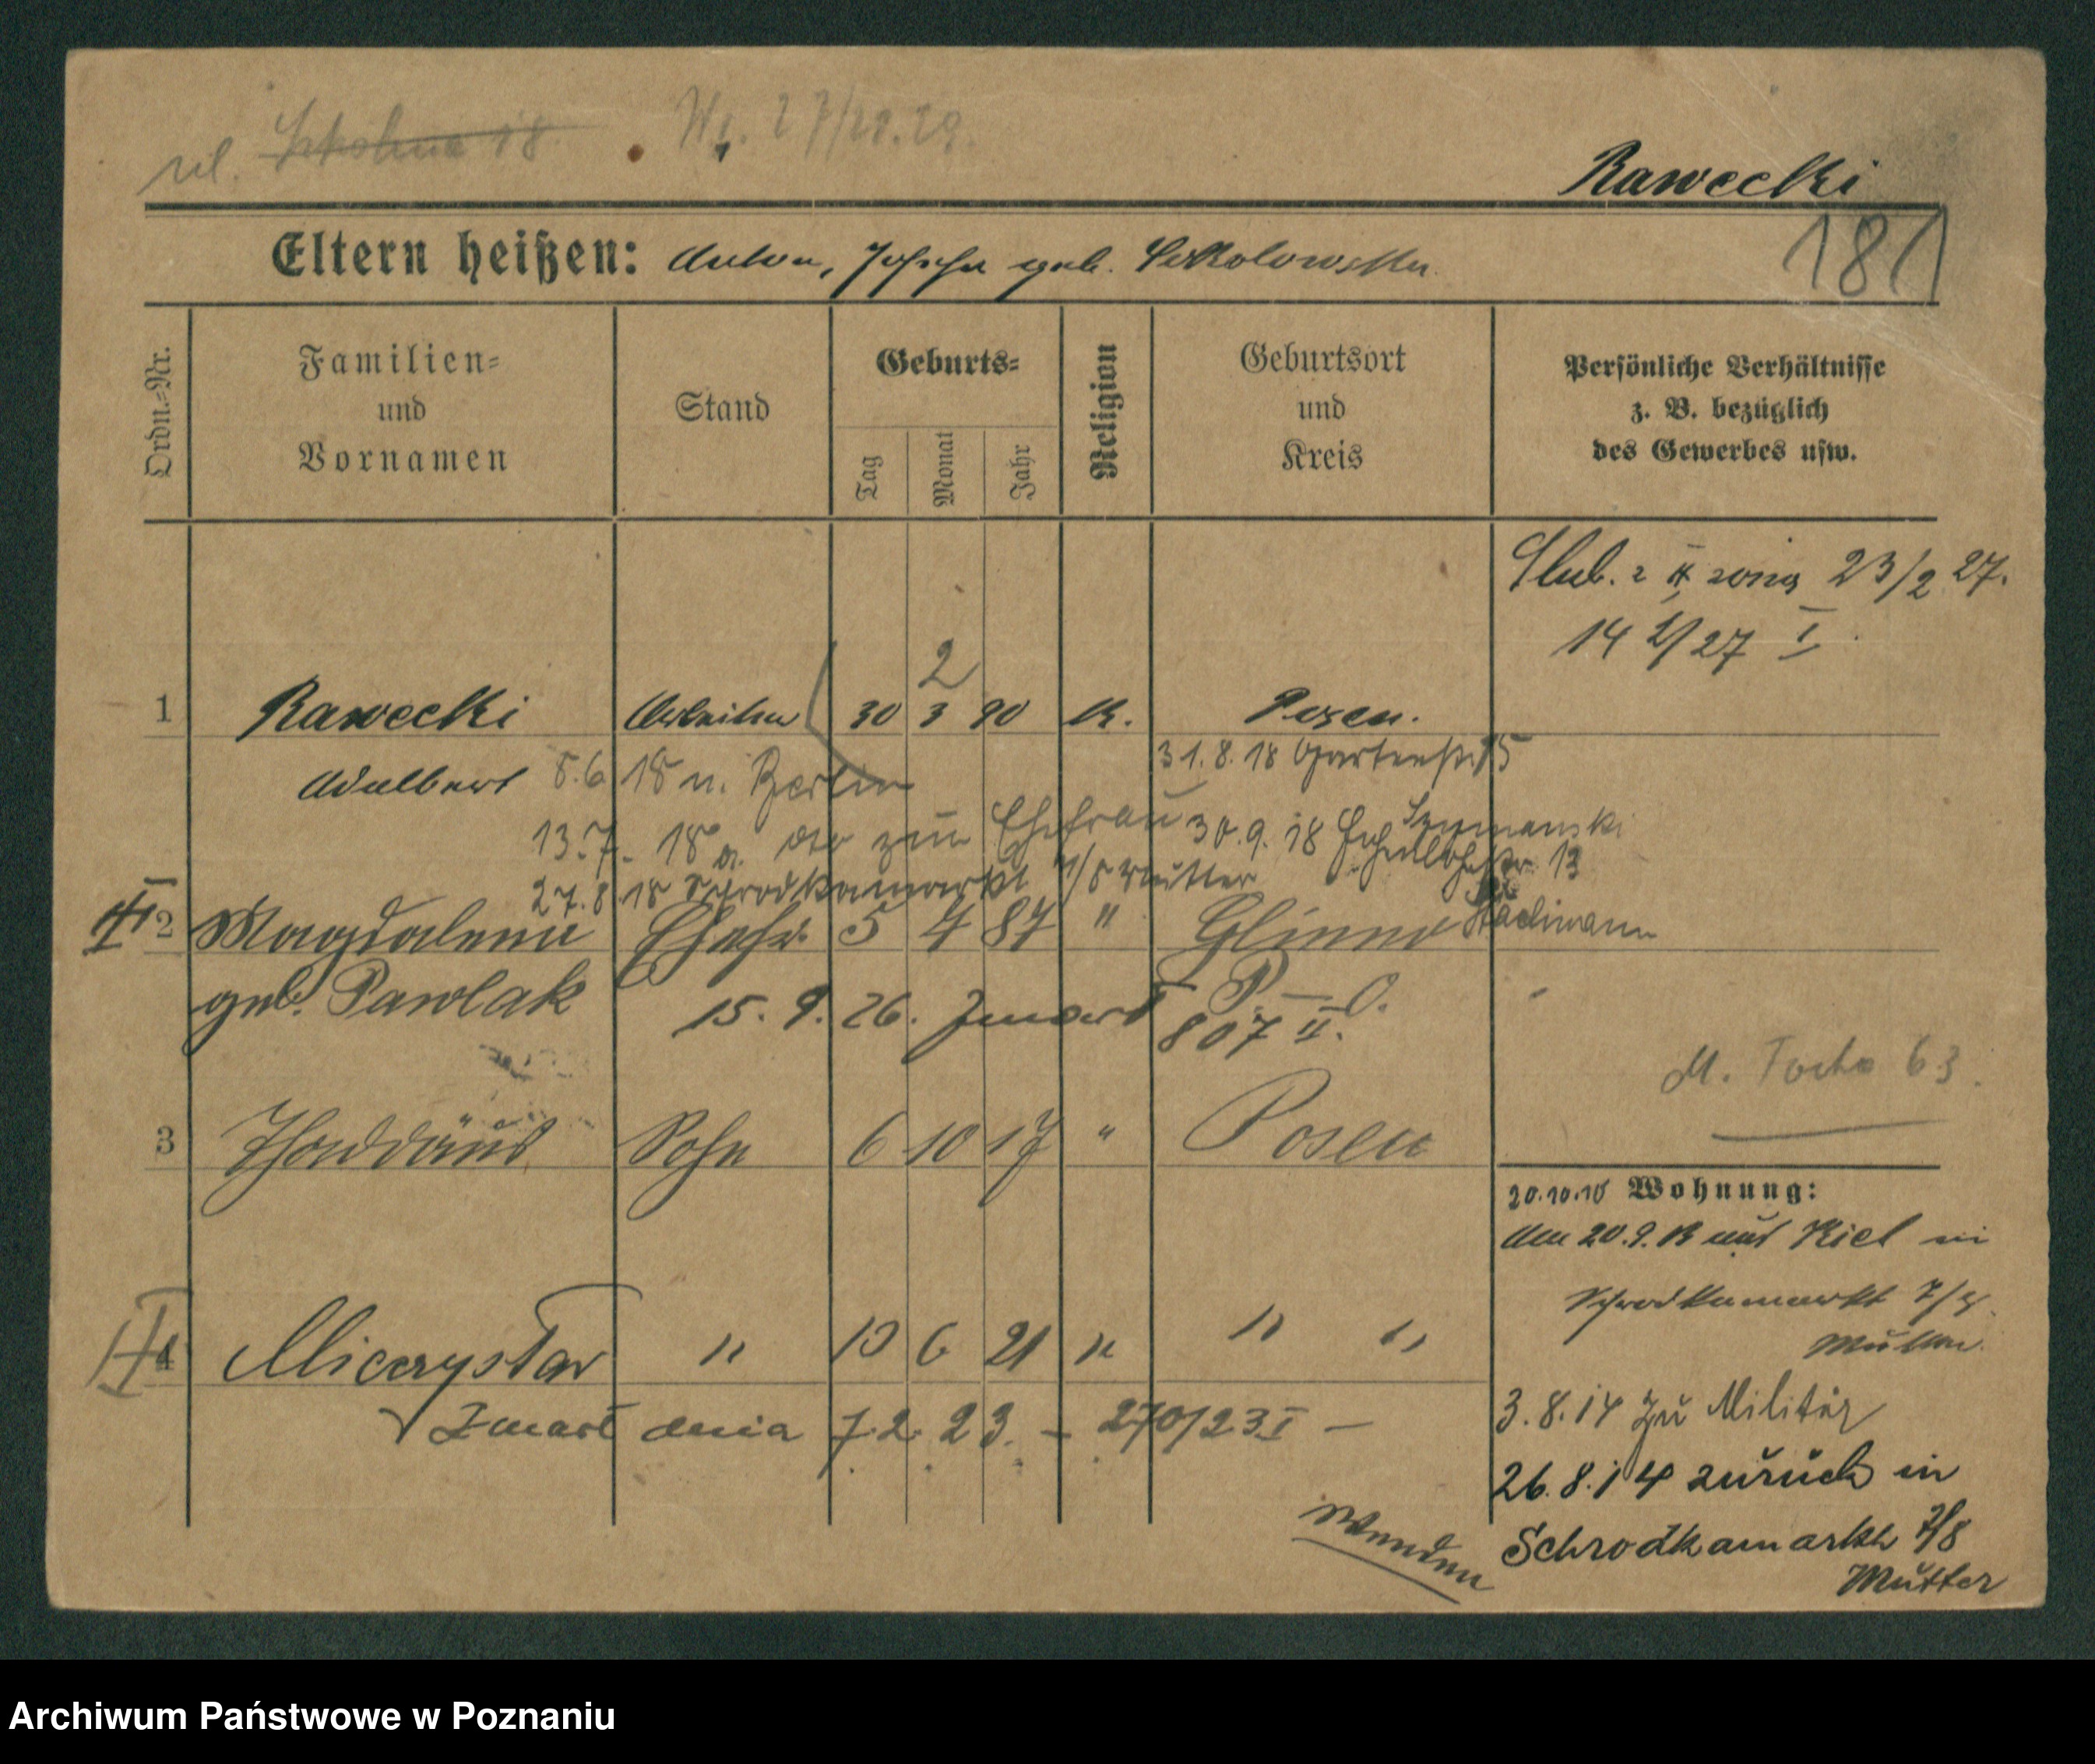 ul. Szkolna 18
Rawecki
181
Eltern heißen: Anton, Josefa geb. Sokolowska
Ordn.=Nr.
Familien=
und
Vornamen
Stand
Geburts=
Tag
Monat
Jahr
Religion
Geburtsort
und
Kreis
Persönliche Verhältnisse
z. B. bezüglich
des Gewerbes usw.
Slub. z II żoną 23/2 27.
14 2/27 I
2
1 Rawecki Arbeiter 30 3 90 K. Posen.
Adalbert 5.6 18 n. Berlin 31.8.18 Gartenstr. 15
13.7. 18 zur Ehefrau 30.9.18 Szymanski
27.8.18 Schrodkamarkt 7/8 Mutter 13
II 2 Magdalena Ehefr. 5 4 87 " Glinno
geb. Pawlak 15. 9. 26. Zmarł P. – O.
807 II.
M. Focha 63.
3 Thaddäus Sohn 6 10 17 " Posen
20.10.10 Wohnung:
Am 20.9.13 aus Kiel in
Schrodkamarkt 7/8.
Mutter.
II 4 Mieczysław " 10 6 21 " " "
Zmarł dnia 7.2.23. – 270/23 I –
3.8.14 zu Militär
26.8.14 zurück in
Schrodkamarkt 7/8
Mutter
Wenden
Archiwum Państwowe w Poznaniu